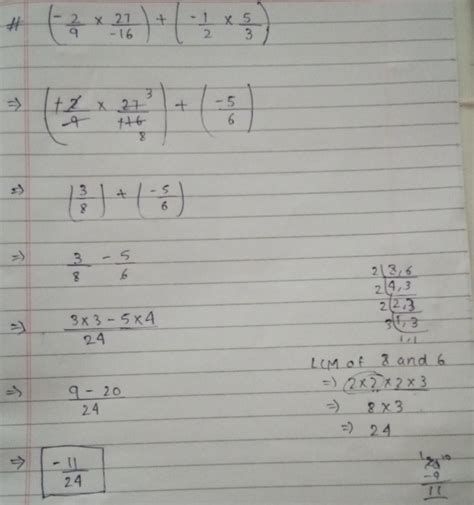 # (-2/9 × 27/-16) + (-1/2 × 5/3)
⇒ (+2/9 × 27/+16 3 8) + (-5/6)
⇒ (3/8) + (-5/6)
⇒ 3/8 - 5/6
⇒ 3×3 - 5×4 / 24
⇒ 9 - 20 / 24
⇒ -11/24
2 | 8, 6
2 | 4, 3
2 | 2, 3
3 | 1, 3
1, 1
LCM of 8 and 6
⇒ 2×2×2×3
⇒ 8×3
⇒ 24
20
-9
11